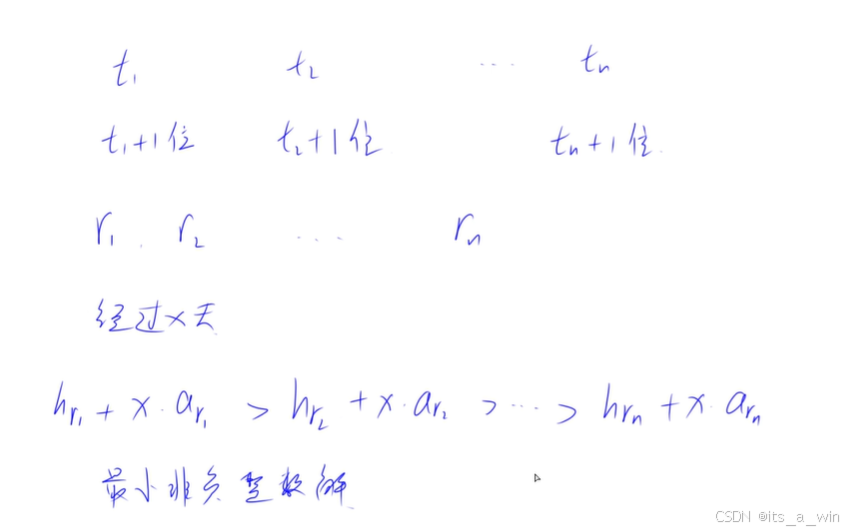 t₁ t₂ ... tₙ
t₁+1位 t₂+1位 tₙ+1位.
r₁. r₂ ... rₙ
经过x天
h_{r₁} + x·a_{r₁} > h_{r₂} + x·a_{r₂} > ... > h_{rₙ} + x·a_{rₙ}
最小非负整数解
CSDN @its_a_win